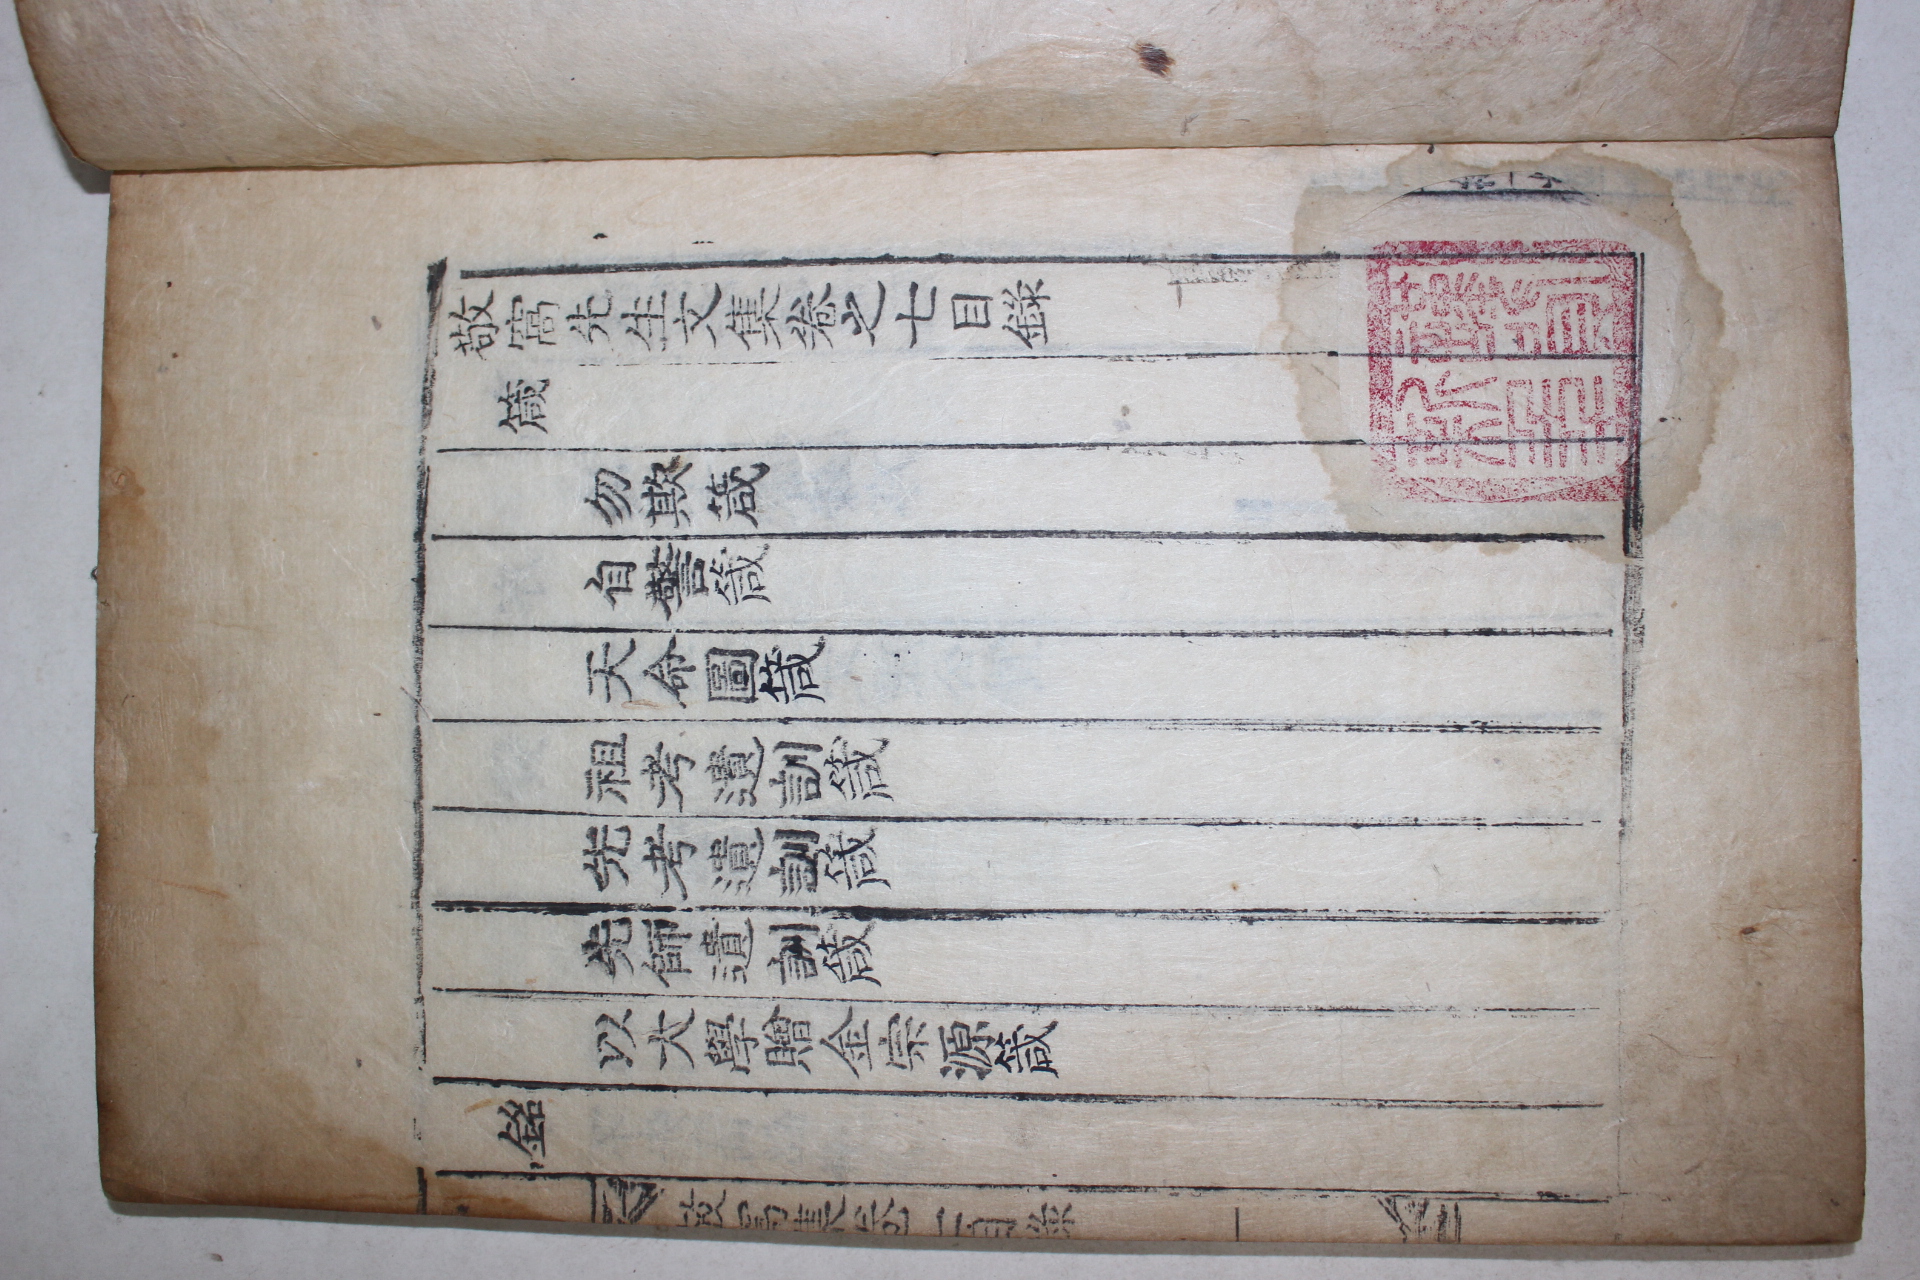 敬窩先生文集卷之七目錄
箴
勿欺箴
自警箴
天命圖箴
祖考遺訓箴
先考遺訓箴
先師遺訓箴
以大學贈金宗源箴
銘
敬窩集卷七目錄
一